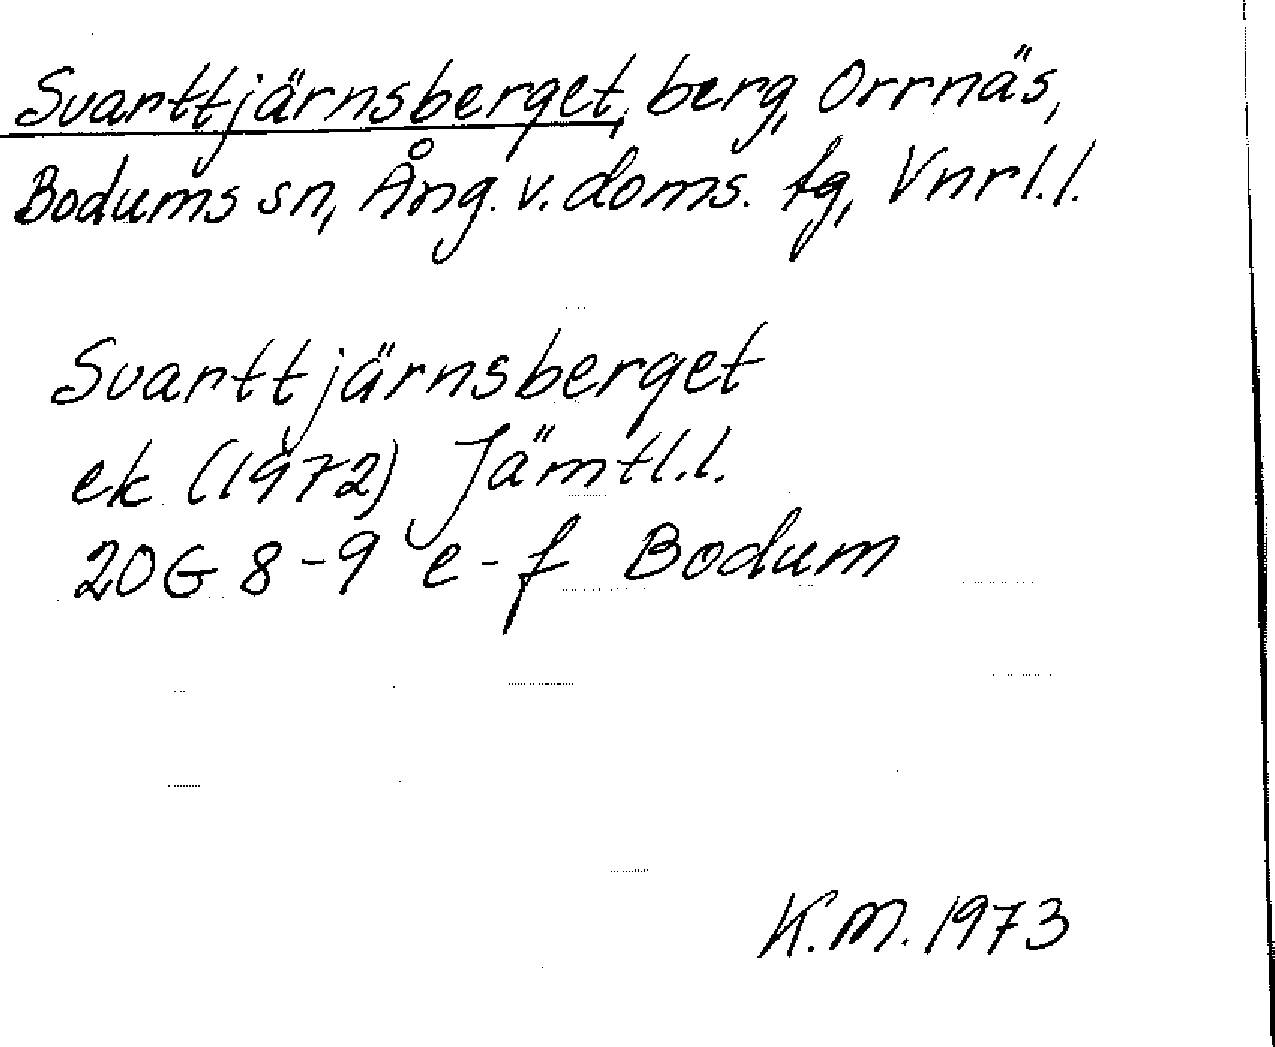 Svarttjärnsberget, berg, Orrnäs,
Bodums sn, Ång. v. doms. tg, Vnrl.l.
Svarttjärnsberget
ek (1972) Jämtl.l.
20G 8-9 e-f Bodum
K.M. 1973